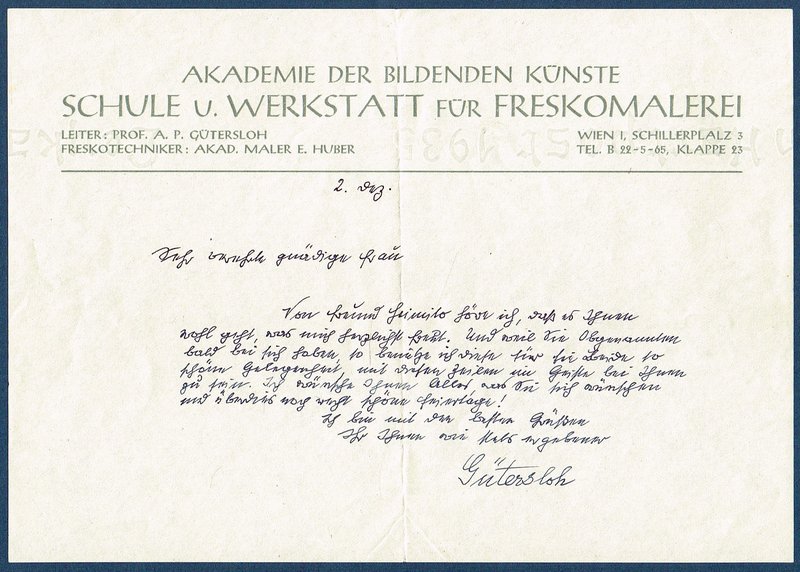 AKADEMIE DER BILDENDEN KÜNSTE
SCHULE U. WERKSTATT FÜR FRESKOMALEREI
LEITER: PROF. A. P. GÜTERSLOH
FRESKOTECHNIKER: AKAD. MALER E. HUBER
WIEN I, SCHILLERPLALZ 3
TEL. B 22-5-65, KLAPPE 23
2. Dez.
Sehr verehrte gnädige Frau
Von Freund Heimito höre ich, daß es Ihnen
wohl geht, was mich herzlichst freut. Und weil Sie Obgenannten
bald bei sich haben, so benütze ich diese für sie beide so
schöne Gelegenheit, mit diesen Zeilen im Geiste bei Ihnen
zu sein. Ich wünsche Ihnen Alles was Sie sich wünschen
und überdies noch recht schöne Feiertage!
Ich bin mit den besten Grüßen
Ihr Ihnen wie stets ergebener
Gütersloh